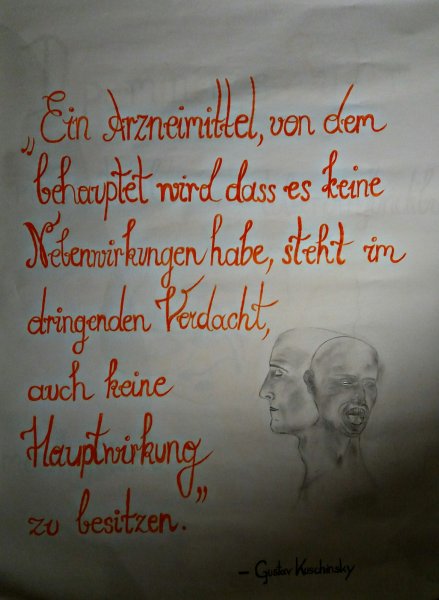 „Ein Arzneimittel, von dem
behauptet wird dass es keine
Nebenwirkungen habe, steht im
dringenden Verdacht,
auch keine
Hauptwirkung
zu besitzen.”
— Gustav Kuschinsky